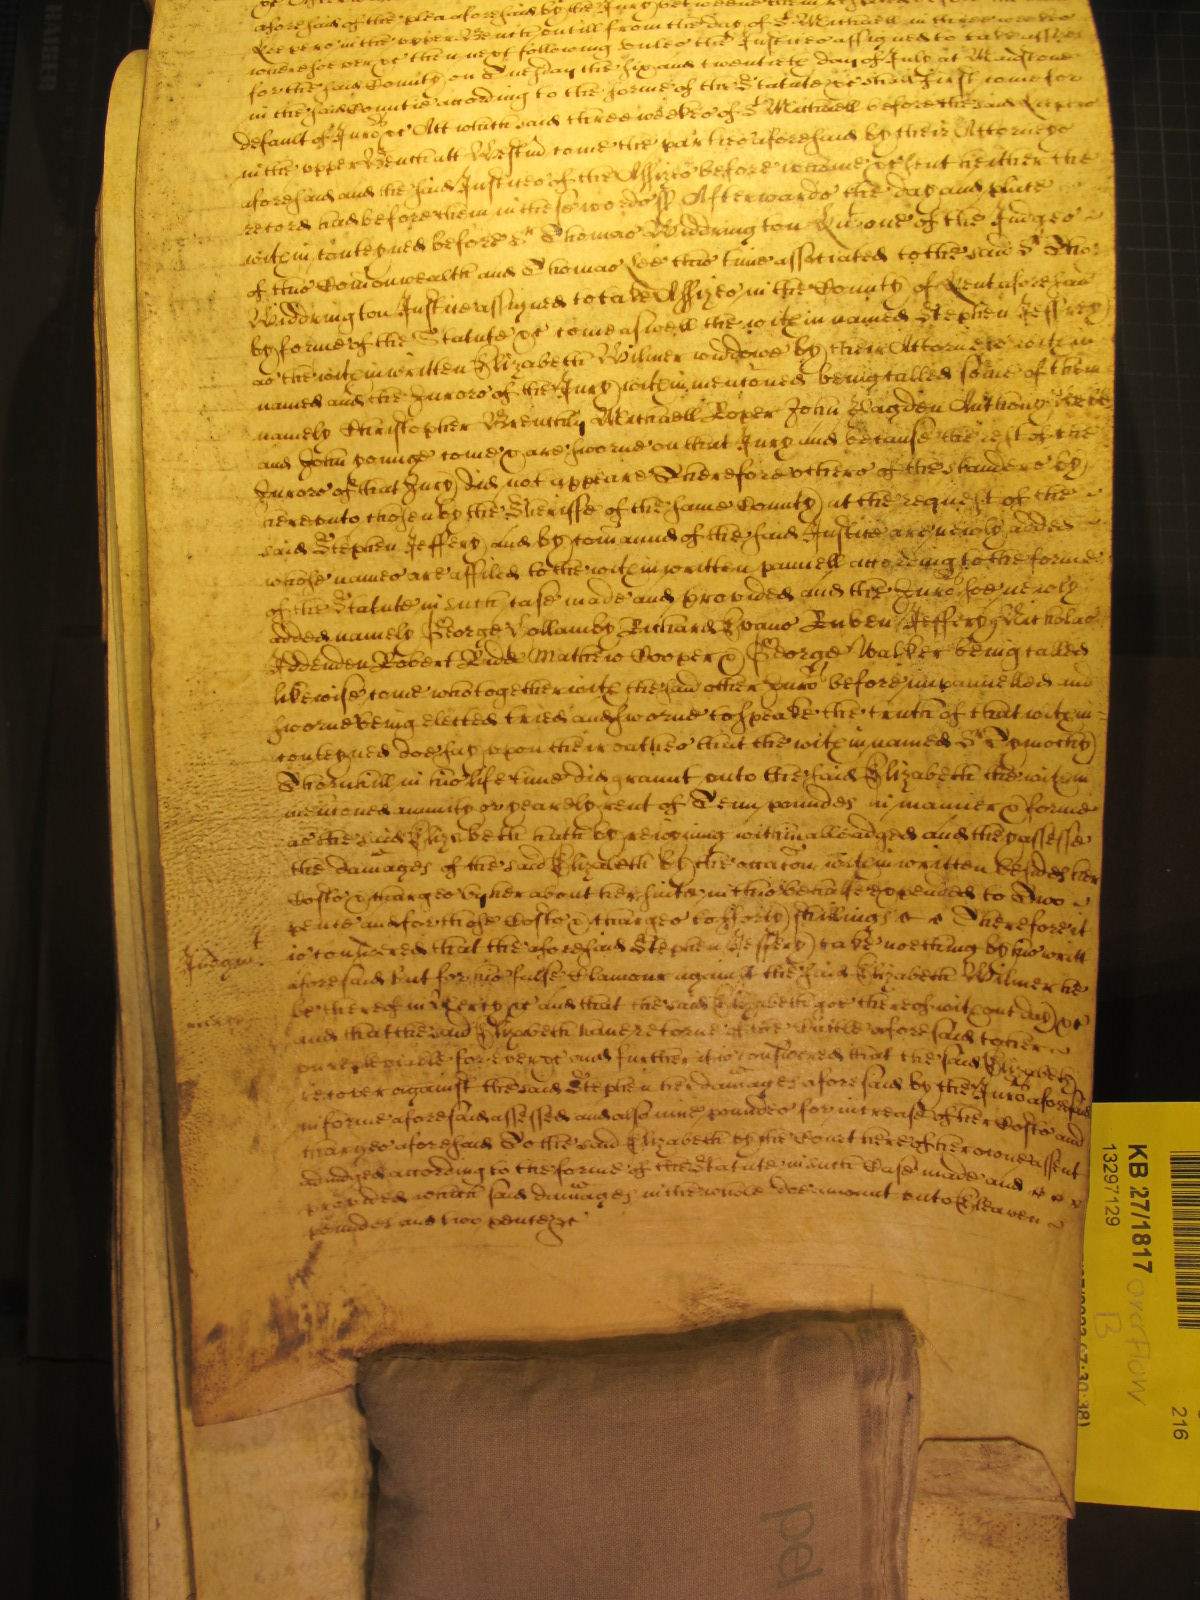 aforesaid of the plea aforesaid by the Jury
Keepers in the upper Bench untill from the day of St Michaell in three weekes
then next following unles the Justices assigned to take assizes
for the said County on Tuesday the six and twentieth day of July at Maidstone
in the said Countie according to the forme of the Statute &c shall first come for
default of Juro &c Att which said three weekes of St Michaell before the said Keepers
in the upper Bench att Westm come the parties aforesaid by their Attorneys
aforesaid and the said Justices of the Assizes before whome &c sent heither the
record had before them in these words ss Afterwards the day and place
within conteyned before Sr Thomas Widdrington Kn one of the Judges
of this Comonwealth and Thomas Lee this time associated to the said Sr Tho:
Widdrington Justice assigned to take Assizes in the County of Kent aforesaid
by forme of the Statute &c come aswell the within named Stephen Jeffrey
as the within written Elizabeth Wilmer widdowe by their Attorneys within
named and the Jurors of the Jury within menconed being called some of them
namely Christopher Brenchly Michaell Roper John Bagden Anthony
and John younge come & are sworne on that Jury and because the rest of the
Jurors of that Jury did not appeare Therefore others of the standers by
hereunto chosen by the Sheriffe of the same County att the request of the
said Stephen Jeffery and by comaund of the said Justice are newly added
whose names are affiled to the within written pannell according to the forme
of the Statute in such case made and provided and the Juro soe newly
added namely George Sollamby Richard Evans Ruben Jeffery Nicholas
Addenden Robert Kide Mathew Cooper & George Walker being called
likewise come who together with the said other Juro before impannelled and
sworne being elected tried and sworne to speake the truth of that within
conteyned doe say upon their oathes that the within named Sr Tymothy
Thornhill in his life time did graunt unto the said Elizabeth the within
menconed annuity or yearely rent of Tenn poundes in manner & forme
as the said Elizabeth hath by rejoyning within alleadged and they assesse
the damages of the said Elizabeth by the occacon within written besides her
Costs & charges by her about her suite in this behalfe expended to Two
pence and for those Costs & charges to forty shillings Therefore it
is considered that the aforesaid Stephen Jeffery take nothing by his writt
aforesaid but for his false Clamour against the said Elizabeth Wilmer he
be thereof in Mercy &c and that the said Elizabeth goe thereof without day &c
and that the said Elizabeth have retorne of the Cattle aforesaid to her
unrepleviable for ever &c and further it is considered that the said Elizabeth
recover against the said Stephen her damages aforesaid by the Juro aforesaid
in forme aforesaid assessed and also nine poundes for increase of her Costs and
charges aforesaid To the said Elizabeth by the Court here of her owne assent
adiudged according to the forme of the Statute in such Case made and
provided which said damages in the whole doe amount unto Eleaven
poundes and two pence &c
Judgm
mercy
KB 27/1817
13297129
overflow
B
216
pel